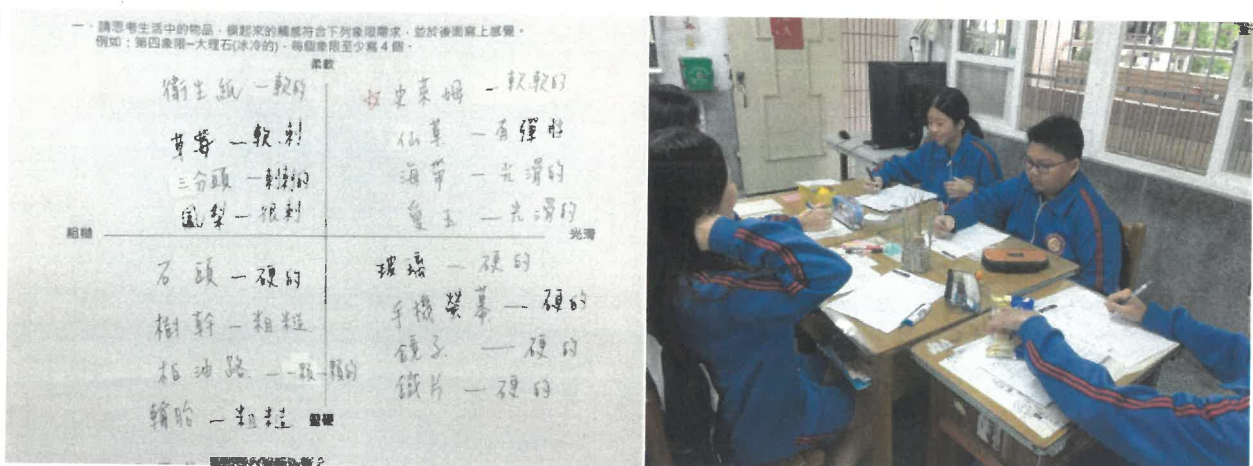 一、請思考生活中的物品，摸起來的觸感符合下列象限需求，並於後面寫上感覺。
例如：第四象限─大理石(冰冷的)，每個象限至少寫4個。
柔軟
衛生紙 一軟的
草莓 一軟.刺
三分頭 一刺刺的
鳳梨 一很刺
史萊姆 一軟軟的
仙草 一有彈性
海帶 一光滑的
一光滑的
粗糙
光滑
石頭 一硬的
樹幹 一粗糙
柏油路 一一顆一顆的
輪胎 一粗糙
玻璃 一硬的
手機螢幕 一硬的
鏡子 一硬的
鐵片 一硬的
堅硬